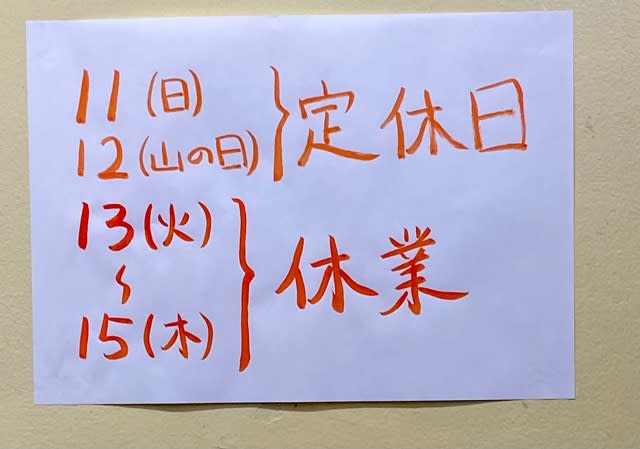 11(日)
12(山の日)
定休日
13(火)
〜
15(木)
休業